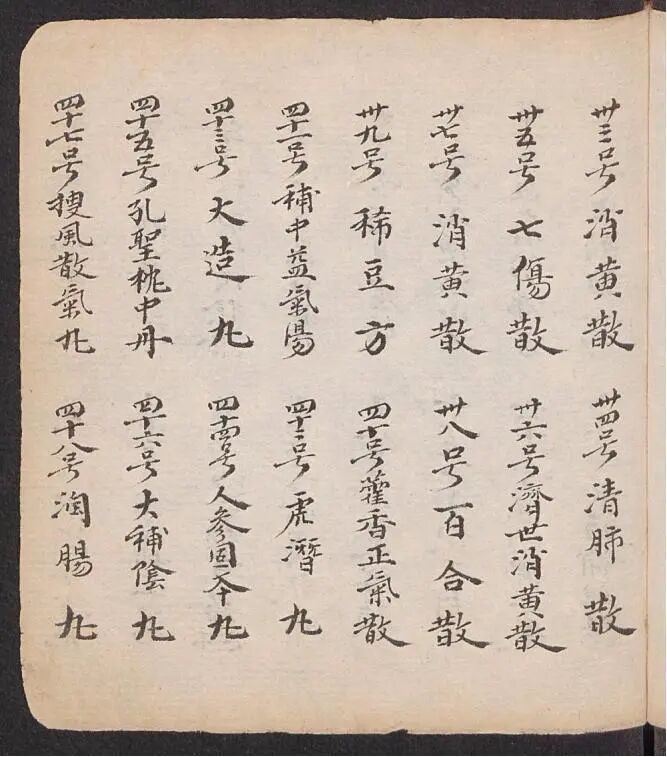 卅三号消黄散 卅四号清肺散
卅五号七傷散 卅六号濟世消黄散
卅七号消黄散 卅八号百合散
卅九号稀豆方 四十号藿香正氣散
四十一号補中益氣湯 四十二号虎潛丸
四十三号大造丸 四十四号人參固本丸
四十五号孔聖枕中丹 四十六号大補陰丸
四十七号搜風散氣丸 四十八号潤腸丸